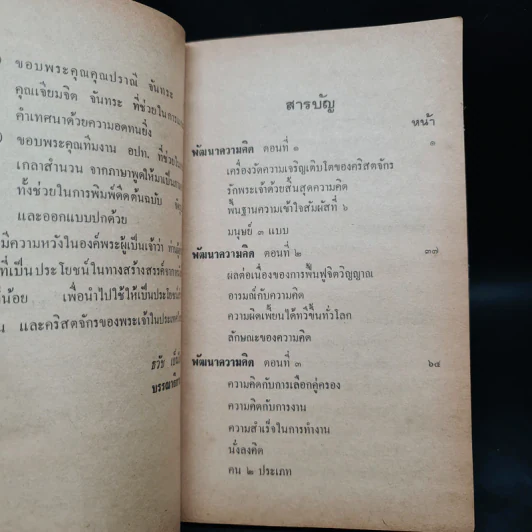 ขอบพระคุณคุณปราณี จันทระ
คุณเจียมจิต จันทระ ที่ช่วยในการ
คำเทศนาด้วยความอดทนยิ่ง
ขอบพระคุณทีมงาน อปท. ที่ช่วย
เกลาสำนวน จากภาษาพูดให้มาเป็น
ทั้งช่วยในการพิมพ์ดีดต้นฉบับ
และออกแบบปกด้วย
มีความหวังในองค์พระผู้เป็นเจ้าว่า
ที่เป็นประโยชน์ในทางสร้างสรรค์
ที่น้อย เพื่อนำไปใช้ให้เป็นประโยชน์
และคริสตจักรของพระเจ้าในประเทศ
ธวัช
บรรณาธิการ
สารบัญ
หน้า
พัฒนาความคิด ตอนที่ ๑ ๑
เครื่องวัดความเจริญเติบโตของคริสตจักร
รักพระเจ้าด้วยสิ้นสุดความคิด
พื้นฐานความเข้าใจสัมผัสที่ ๖
มนุษย์ ๓ แบบ
พัฒนาความคิด ตอนที่ ๒ ๓๗
ผลต่อเนื่องของการฟื้นฟูจิตวิญญาณ
อารมณ์กับความคิด
ความผิดเพี้ยนได้ทวีขึ้นทั่วโลก
ลักษณะของความคิด
พัฒนาความคิด ตอนที่ ๓ ๖๔
ความคิดกับการเลือกคู่ครอง
ความคิดกับการงาน
ความสำเร็จในการทำงาน
นั่งลงคิด
คน ๒ ประเภท